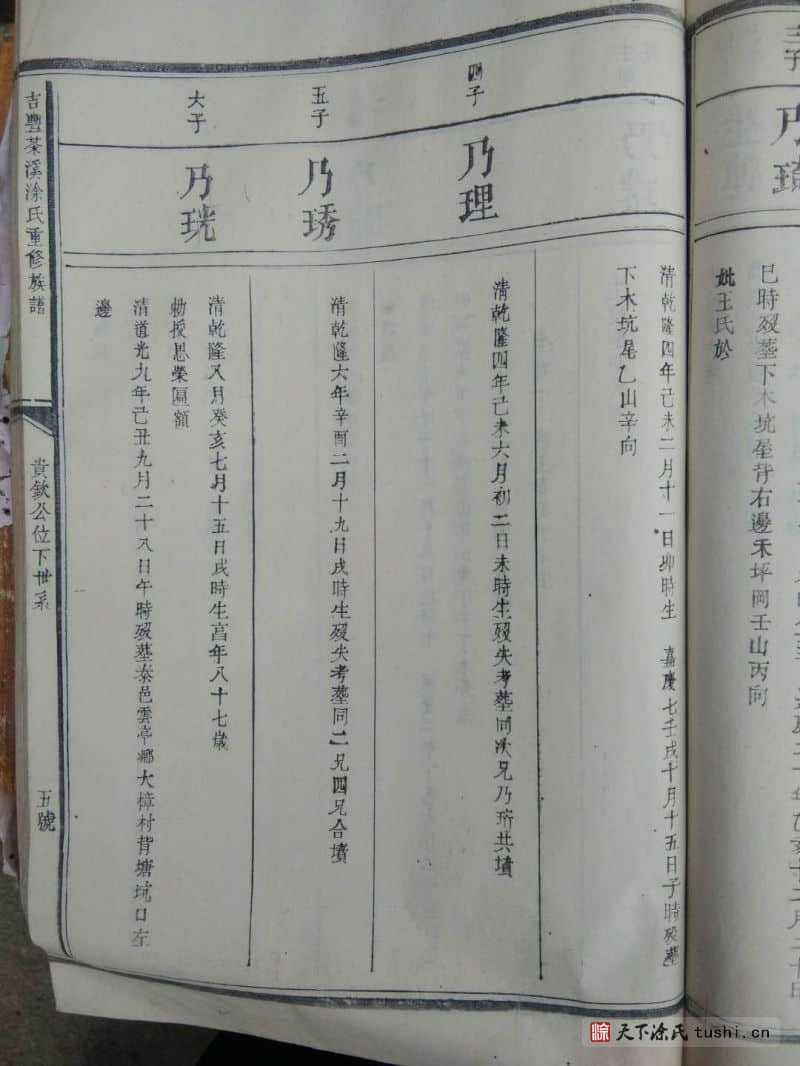 三子
乃
巳時殁塟下木坑屋背右邊禾坪岡壬山丙向
妣王氏於
四子
乃理
五子
乃琇
大子
乃珖
清乾隆四年己未二月十一日卯時生 嘉慶七壬戌十月十五日子時殁塟
下木坑尾乙山辛向
清乾隆四年己未六月初二日未時生殁失考塟同次兄乃珛共墳
清乾隆六年辛酉二月十九日戌時生殁失考塟同二兄四兄合墳
清乾隆又月癸亥七月十五日戌時生享年八十七歲
勅授恩榮匾額
清道光九年己丑九月二十八日午時殁塟泰邑雲亭鄉大樟村背塘坑口左
邊
吉豐茶溪涂氏重修族譜
貴欽公位下世系
五號
天下涂氏 tushi.cn